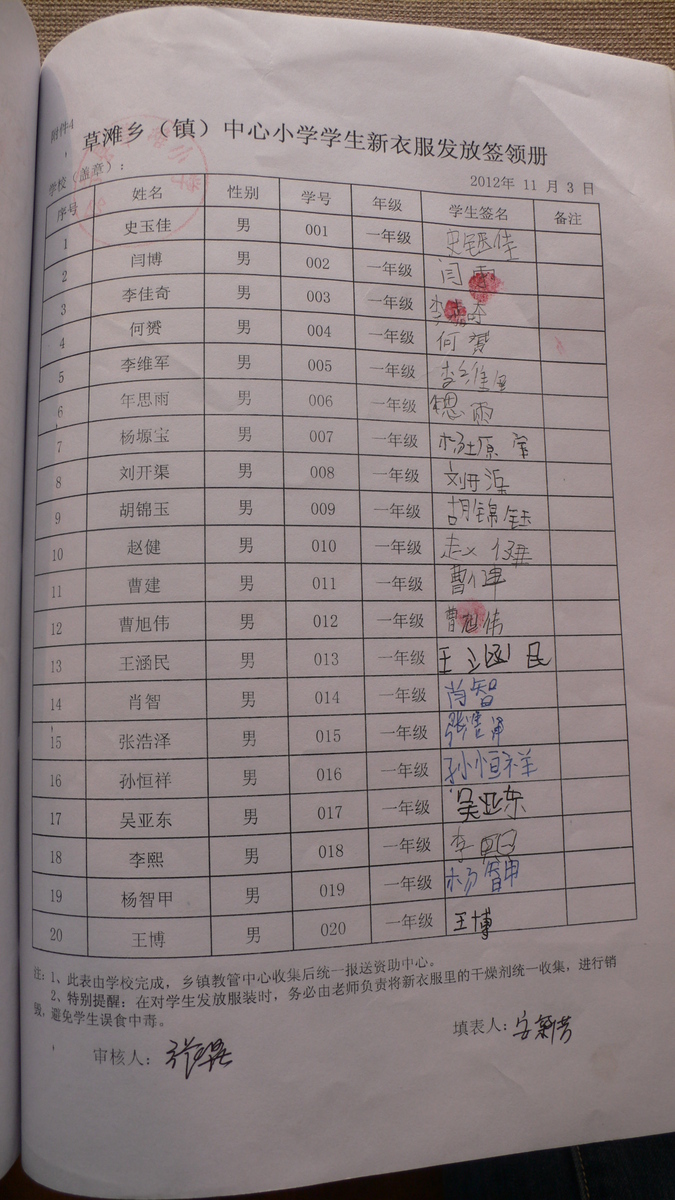 附件4
草滩乡（镇）中心小学学生新衣服发放签领册
学校（盖章）：
2012年 11 月 3 日
序号 姓名 性别 学号 年级 学生签名 备注
1 史玉佳 男 001 一年级 史钰佳
2 闫博 男 002 一年级 闫
3 李佳奇 男 003 一年级 李
4 何赟 男 004 一年级 何赟
5 李维军 男 005 一年级 李维
6 年思雨 男 006 一年级 年思雨
7 杨塬宝 男 007 一年级 杨塬宝
8 刘开渠 男 008 一年级 刘开
9 胡锦玉 男 009 一年级 胡锦钰
10 赵健 男 010 一年级 赵
11 曹建 男 011 一年级 曹
12 曹旭伟 男 012 一年级 曹旭伟
13 王涵民 男 013 一年级 王涵民
14 肖智 男 014 一年级 肖智
15 张浩泽 男 015 一年级 张
16 孙恒祥 男 016 一年级 孙恒祥
17 吴亚东 男 017 一年级 吴亚东
18 李熙 男 018 一年级 李
19 杨智甲 男 019 一年级 杨智甲
20 王博 男 020 一年级 王博
注：1、此表由学校完成，乡镇教管中心收集后统一报送资助中心。
2、特别提醒：在对学生发放服装时，务必由老师负责将新衣服里的干燥剂统一收集，进行销
毁，避免学生误食中毒。
填表人：
审核人：